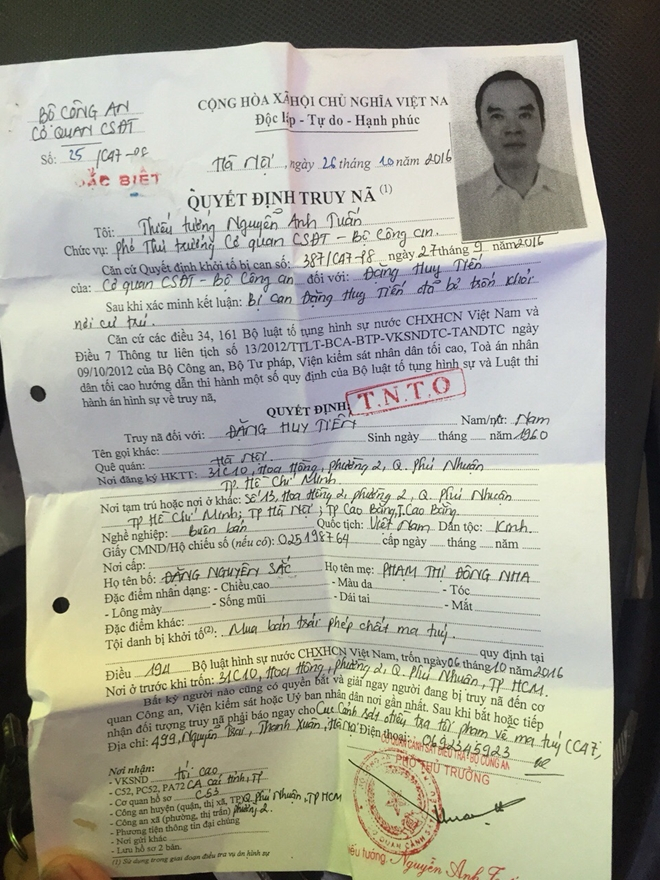 BỘ CÔNG AN
CƠ QUAN CSĐT
Số: 25 /C47-P8
ĐẶC BIỆT
CỘNG HÒA XÃ HỘI CHỦ NGHĨA VIỆT NA
Độc lập - Tự do - Hạnh phúc
Hà Nội, ngày 26 tháng 10 năm 2016
QUYẾT ĐỊNH TRUY NÃ (1)
Tôi: Thiếu tướng Nguyễn Anh Tuấn
Chức vụ: Phó Thủ trưởng Cơ quan CSĐT - Bộ Công an.
Căn cứ Quyết định khởi tố bị can số: 387/C47-P8 ngày 27 tháng 9 năm 2016
của: Cơ quan CSĐT - Bộ Công an đối với: Đặng Huy Tiến
Sau khi xác minh kết luận: Bị can Đặng Huy Tiến đã bỏ trốn khỏi
nơi cư trú.
Căn cứ các điều 34, 161 Bộ luật tố tụng hình sự nước CHXHCN Việt Nam và
Điều 7 Thông tư liên tịch số 13/2012/TTLT-BCA-BTP-VKSNDTC-TANDTC ngày
09/10/2012 của Bộ Công an, Bộ Tư pháp, Viện kiểm sát nhân dân tối cao, Toà án nhân
dân tối cao hướng dẫn thi hành một số quy định của Bộ luật tố tụng hình sự và Luật thi
hành án hình sự về truy nã,
QUYẾT ĐỊNH:
T.N.T.O
Truy nã đối với: ĐẶNG HUY TIẾN Nam/nữ: Nam
Tên gọi khác: Sinh ngày tháng năm 1960
Quê quán: Hà Nội.
Nơi đăng ký HKTT: 31C10, Hoa Hồng, phường 2, Q. Phú Nhuận
TP. Hồ Chí Minh
Nơi tạm trú hoặc nơi ở khác: Số 13, Hoa Hồng 2, phường 2, Q. Phú Nhuận
TP Hồ Chí Minh; TP Hà Nội; TP Cao Bằng, T. Cao Bằng.
Nghề nghiệp: buôn bán Quốc tịch: Việt Nam Dân tộc: Kinh.
Giấy CMND/Hộ chiếu số (nếu có): 025198764 cấp ngày tháng năm
Nơi cấp:
Họ tên bố: ĐẶNG NGUYÊN SẮC Họ tên mẹ: PHẠM THỊ ĐÔNG NHA
Đặc điểm nhân dạng: - Chiều cao - Màu da - Tóc
- Lông mày - Sống mũi - Dái tai - Mắt
Đặc điểm khác:
Tội danh bị khởi tố(2): Mua bán trái phép chất ma túy. quy định tại
Điều 194 Bộ luật hình sự nước CHXHCN Việt Nam, trốn ngày 06 tháng 10 năm 2016
Nơi ở trước khi trốn: 31C10, Hoa Hồng, phường 2, Q. Phú Nhuận, TP HCM.
Bất kỳ người nào cũng có quyền bắt và giải ngay người đang bị truy nã đến cơ
quan Công an, Viện kiểm sát hoặc Uỷ ban nhân dân nơi gần nhất. Sau khi bắt hoặc tiếp
nhận đối tượng truy nã phải báo ngay cho Cục Cảnh sát điều tra tội phạm về ma túy (C47,
Địa chỉ: 499, Nguyễn Trãi, Thanh Xuân, Hà Nội Điện thoại: 0692345923
CƠ QUAN CẢNH SÁT ĐIỀU TRA - BỘ CÔNG AN
PHÓ THỦ TRƯỞNG
Nơi nhận:
- VKSND tối cao
- C52, PC52, PA72 CA các tỉnh, TP
- Cơ quan hồ sơ C53
- Công an huyện (quận, thị xã, TP) Q. Phú Nhuận, TP HCM
- Công an xã (phường, thị trấn) phường 2.
- Phương tiện thông tin đại chúng
- Nơi gửi khác
- Lưu hồ sơ 2 bản.
(1) Sử dụng trong giai đoạn điều tra vụ án hình sự
iếu tướng: Nguyễn Anh